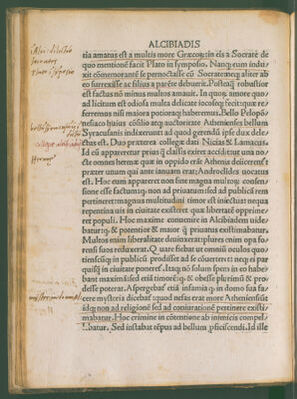 ALCIBIADIS
tia amatus est a multis more Græco: in eis a Socrate de
quo mentionem facit Plato in symposio. Nanq; eum indu
xit cōmemorantē se pernoctasse cū Socrate: neq; aliter ab
eo surrexisse ac filius a parēte debuerit. Posteaq; robustior
est factus nō minus multos amauit. In quorū amore quo
ad licitum est odiosa multa delicate iocoseq; fecit: quæ re
ferremus nisi maiora potiora haberemus. Bello Pelopō
nesiaco huius cōsilio atq; auctoritate Athenienses bellum
Syracusanis indixerunt: ad quod gerendū ipse dux delec
tus est. Duo præterea collegæ dati: Nicias & Lamacus.
Id cū appareretur prius q; classis exiret accidit: ut una no
cte omnes hermæ qui in oppido erāt Athenis deiicerent
præter unum qui ante ianuam erat: Androclides uocatus
est. Hoc cum appareret non sine magna multorū consen
sione esse factum: q; non ad priuatum sed ad publicā rem
pertineret: magnus multitudini timor est iniectus: ne qua
repentina uis in ciuitate existeret: quæ libertatē opprime
ret populi. Hoc maxime conuenire in Alcibiadem uide
batur: q; & potentior & maior q; priuatus existimabatur.
Multos enim liberalitate deuixerat: plures etiam opa fo
rensi suos reddiderat. Q uare fiebat ut omniū oculos quo
tienscūq; in publicū prodisset ad se cōuerteret: neq; ei par
quisq; in ciuitate poneret. Itaq; nō solum spem in eo habe
bant maximā: sed etiā timorē: q; & obesse plurimū & pro
desse poterat. Aspergebat etiā infamia q; in domo sua fa
cere mysteria dicebat quod nefas erat more Atheniēsiū
idq; non ad religionē sed ad coniurationē pertinere existi
mabatur. Hoc crimine in cōtentione ab inimicis compel
labatur. Sed instabat tēpus ad bellum pficiscendi. Id ille